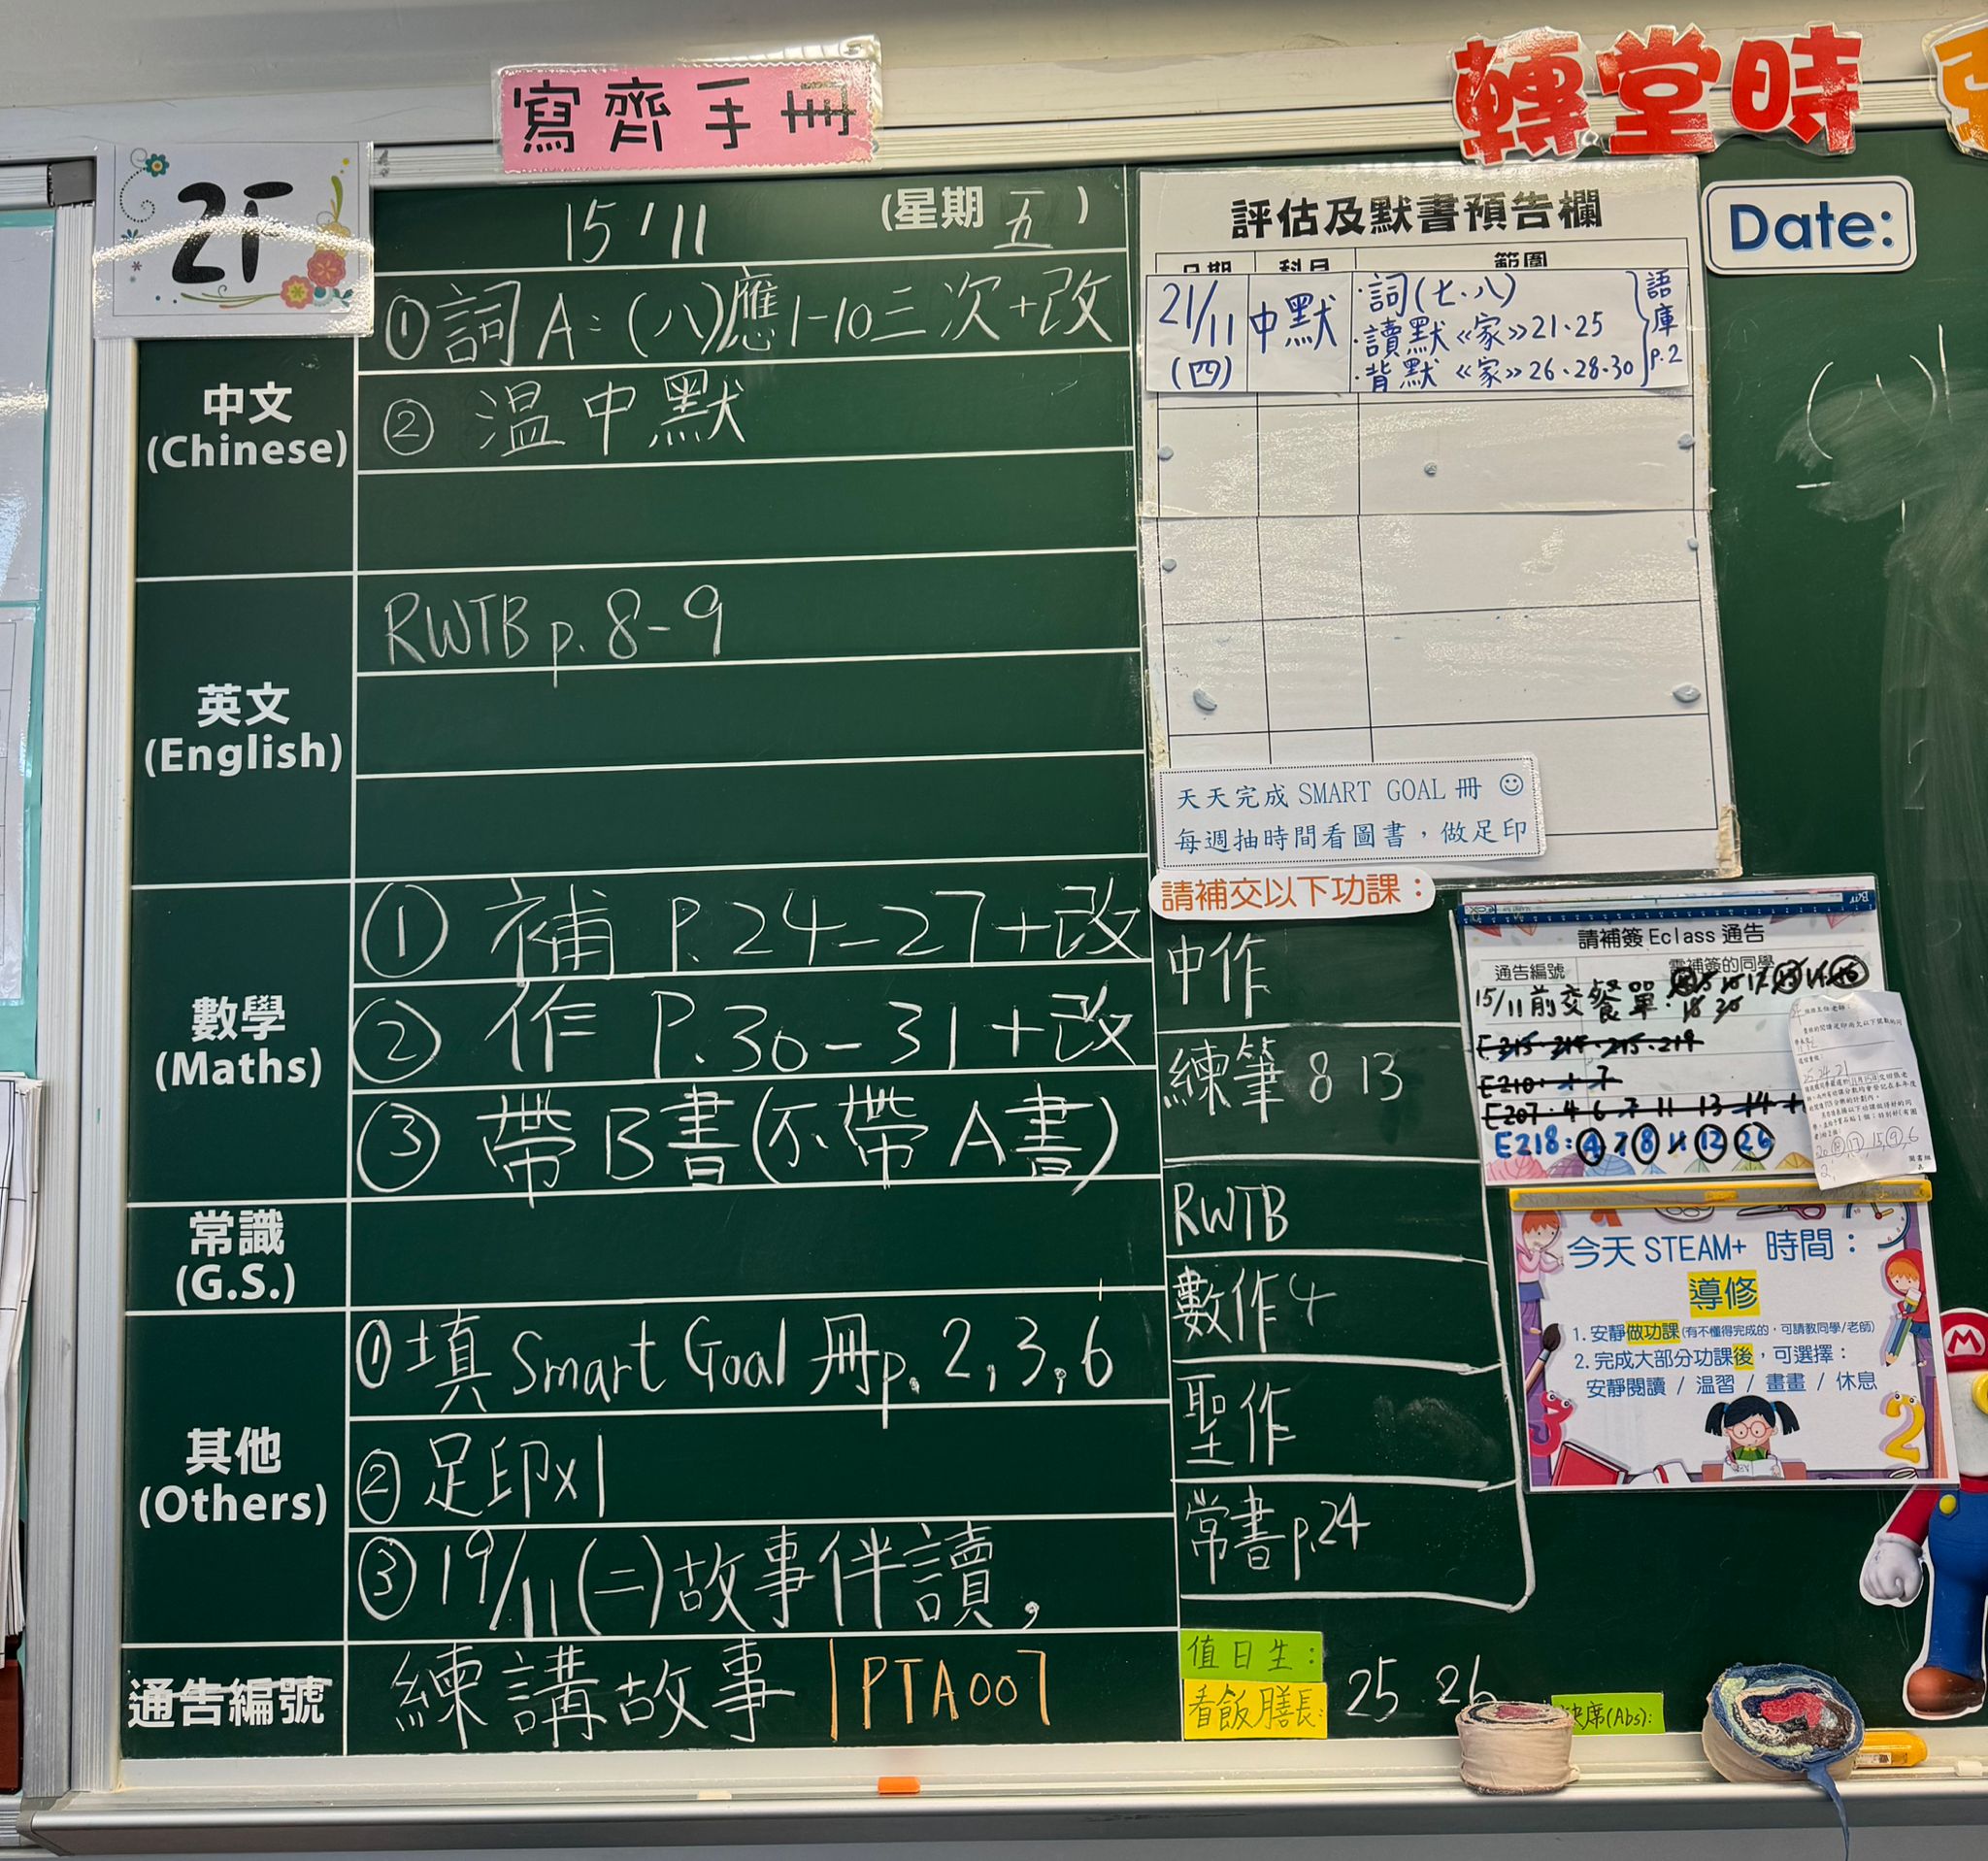 寫齊手冊
轉堂時
2F
15/11 (星期五)
中文
(Chinese)
①詞A:(八)應1-10三次+改
②溫中默
英文
(English)
RWTB p.8-9
數學
(Maths)
①補 P.24-27+改
②作 P.30-31+改
③帶B書(不帶A書)
常識
(G.S.)
其他
(Others)
①填Smart Goal冊p.2,3,6
②足印x1
③19/11(二)故事伴讀,
通告編號
練講故事 PTA007
評估及默書預告欄
日期 科目 範圍
21/11 (四)
中默
·詞(七、八)
·讀默《家》21、25
·背默《家》26、28、30
語庫 p.2
天天完成 SMART GOAL 冊 ☺
每週抽時間看圖書，做足印
請補交以下功課：
中作
練筆 8 13
RWTB
數作4
聖作
常書p.24
值日生：
看飯膳長:
25 26
缺席(Abs):
Date:
請補簽 Eclass 通告
通告編號 需補簽的同學
15/11前交餐單:
E207 · 4 6 7 11 13 14
E218: ④ 7 ⑧ 11 ⑫ ㉖
今天 STEAM+ 時間：
導修
1. 安靜做功課(有不懂得完成的，可請教同學/老師)
2. 完成大部分功課後，可選擇：
安靜閱讀 / 溫習 / 畫畫 / 休息
3
2
M